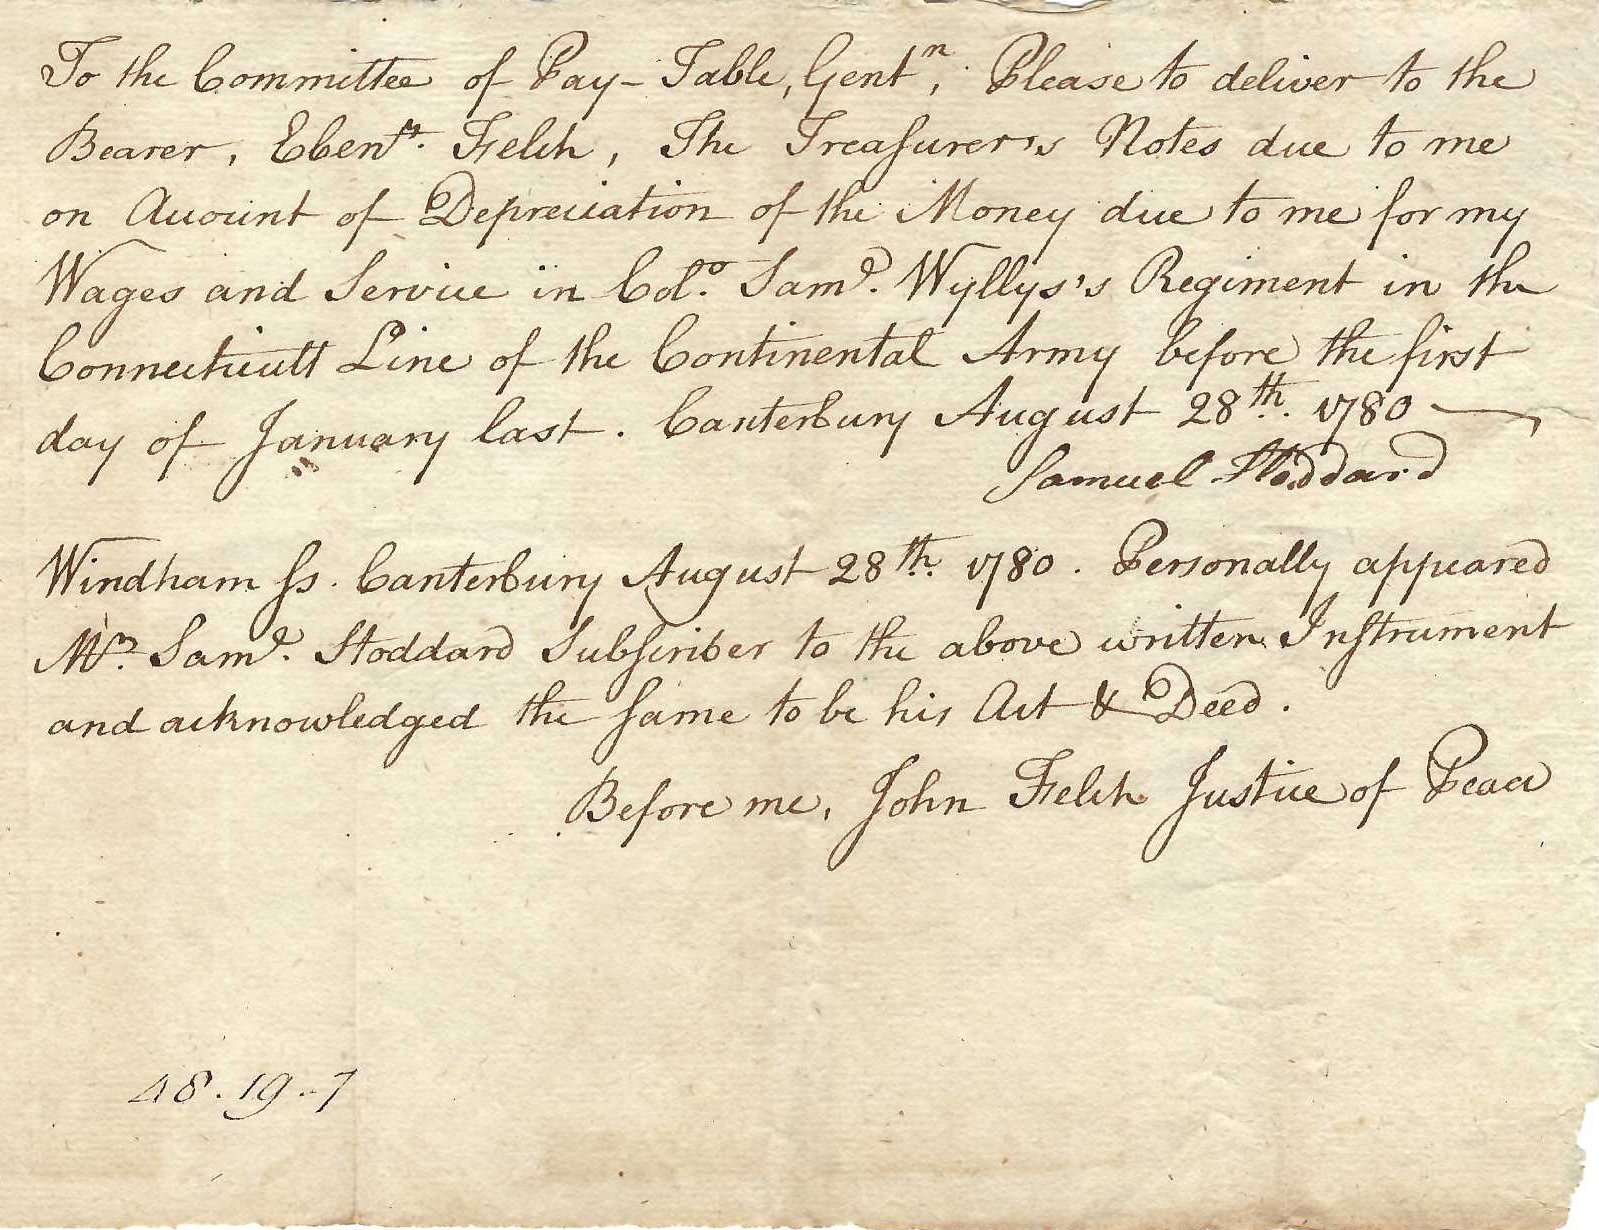 To the Committee of Pay-Table, Gentⁿ, Please to deliver to the
Bearer, Ebenʳ. Felch, The Treaſurer's Notes due to me
on Account of Depreciation of the Money due to me for my
Wages and Service in Colᵒ. Samˡ. Wyllys's Regiment in the
Connecticutt Line of the Continental Army before the first
day of January last. Canterbury August 28ᵗʰ. 1780
Samuel Stoddard
Windham ſs. Canterbury August 28ᵗʰ. 1780. Personally appeared
Mʳ. Samˡ. Stoddard Subſcriber to the above written Inſtrument
and acknowledged the ſame to be his Act & Deed.
Before me, John Felch Justice of Peace
48.19.7